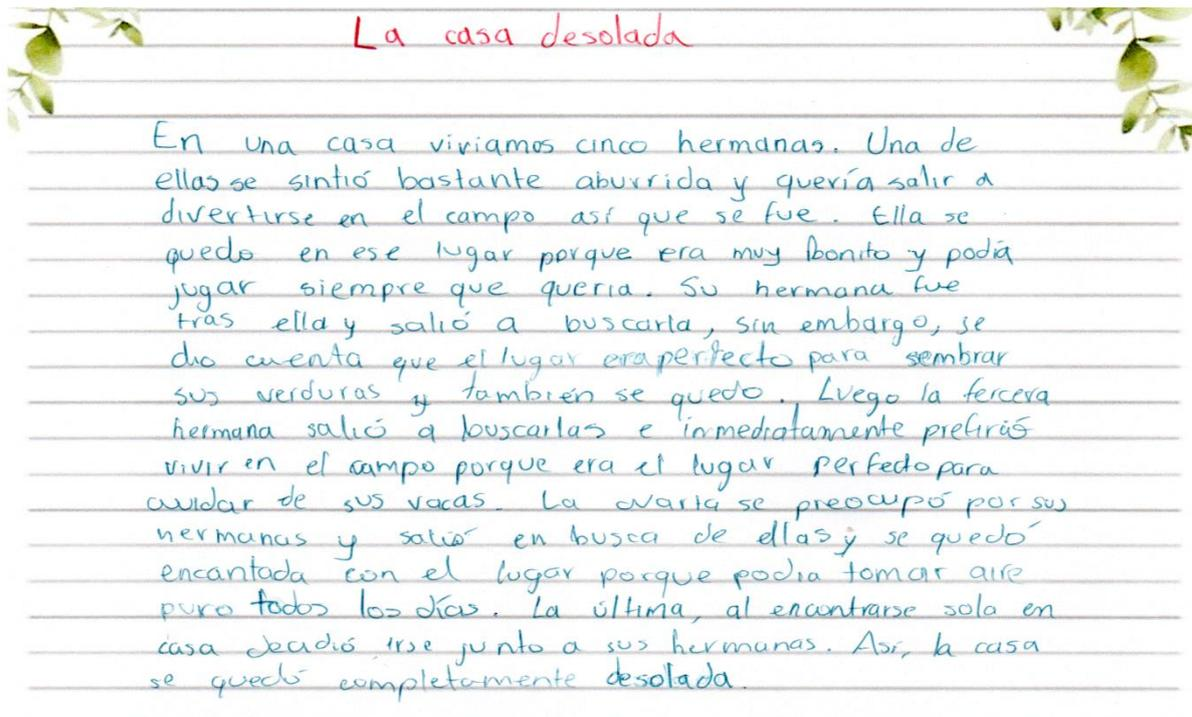 La casa desolada
En una casa viviamos cinco hermanas. Una de
ellas se sintió bastante aburrida y quería salir a
divertirse en el campo así que se fue. Ella se
quedo en ese lugar porque era muy bonito y podía
jugar siempre que queria. Su hermana fue
tras ella y salió a buscarla, sin embargo, se
dio cuenta que el lugar era perfecto para sembrar
sus verduras y también se quedo. Luego la tercera
hermana salió a buscarlas e inmediatamente prefirió
vivir en el campo porque era el lugar perfecto para
cuidar de sus vacas. La cuarta se preocupó por sus
hermanas y salió en busca de ellas y se quedó
encantada con el lugar porque podia tomar aire
puro todos los días. La última, al encontrarse sola en
casa decidió irse junto a sus hermanas. Así, la casa
se quedó completamente desolada.